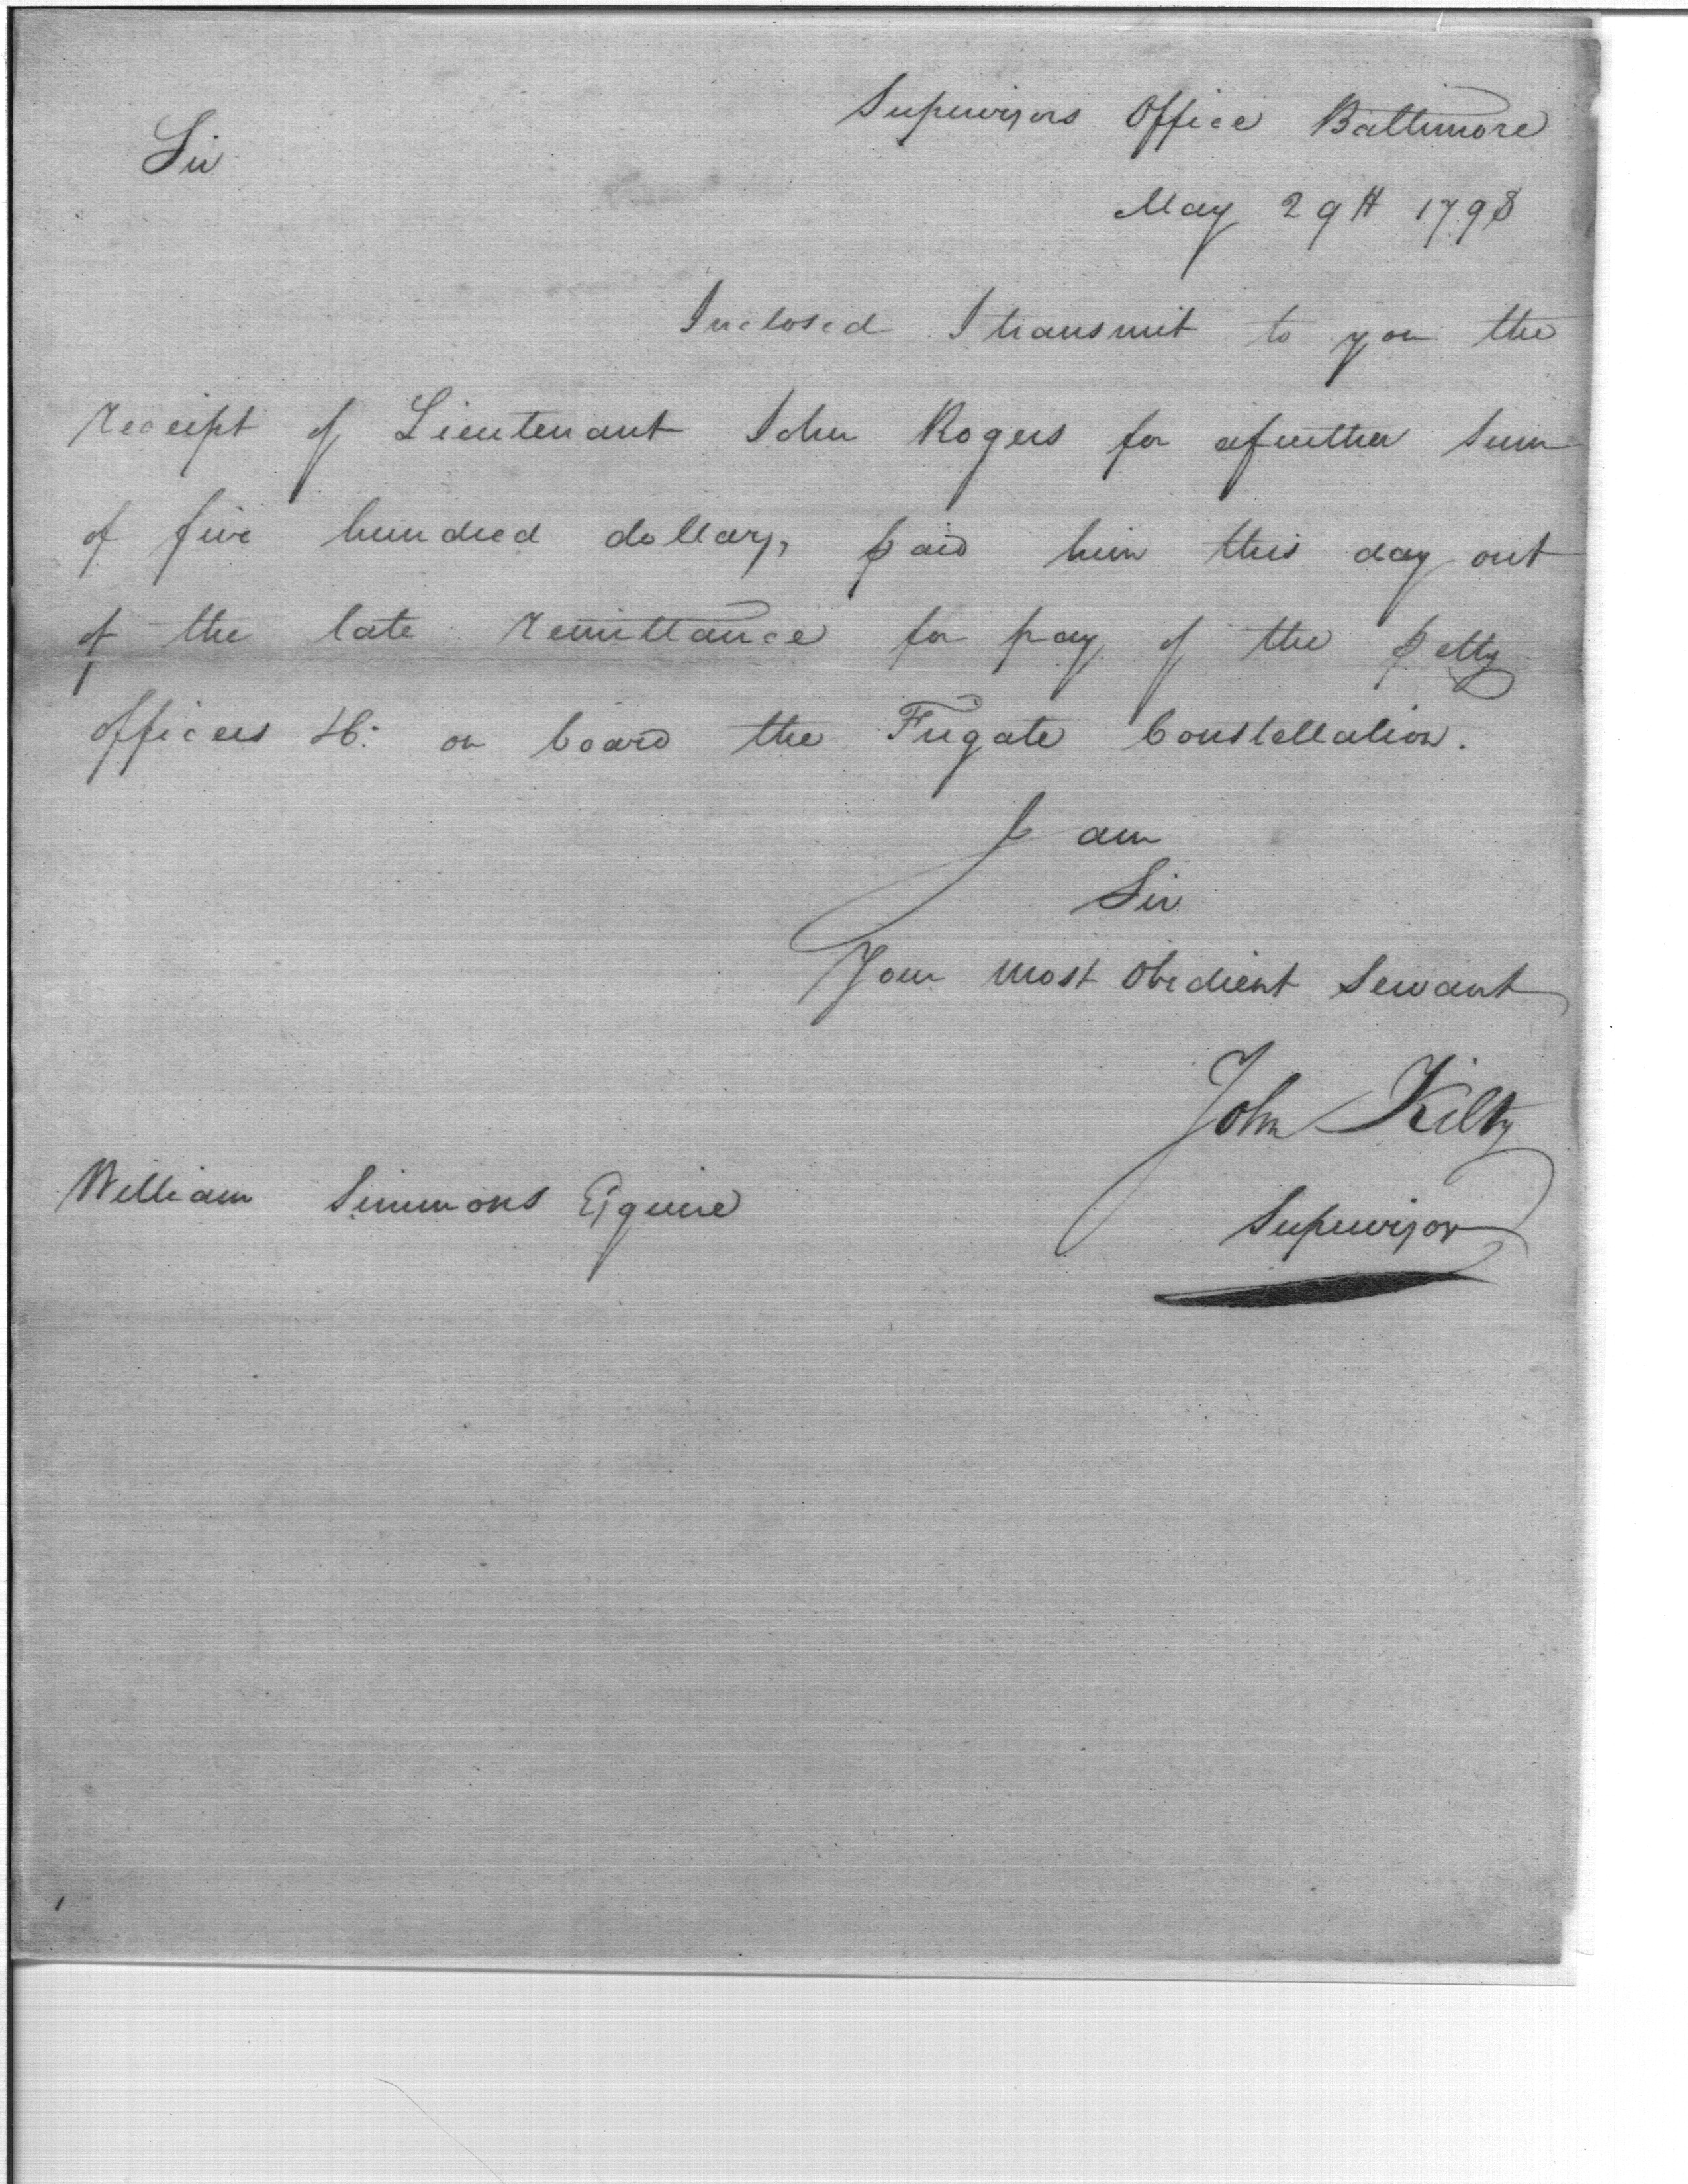 Supervisors Office Baltimore
Sir
May 29th 1798
Inclosed I transmit to you the
receipt of Lieutenant John Rogers for a further sum
of five hundred dollars, paid him this day out
of the late remittance for pay of the petty
officers &c: on board the Frigate Constellation.
I am
Sir
Your most obedient Servant
John Kilty
William Simmons Esquire
Supervisor